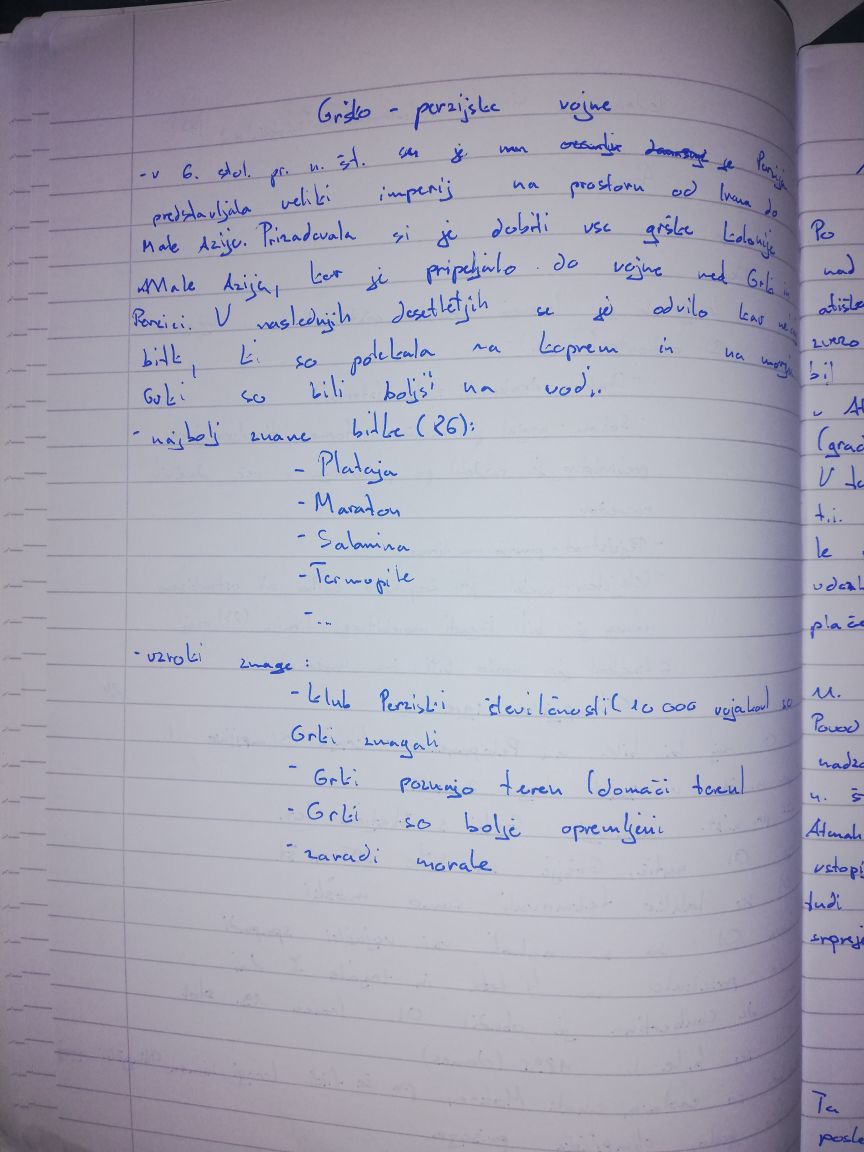 Grško - perzijske vojne
- v 6. stol. pr. n. št. je se Perzija
predstavljala veliki imperij na prostoru od Irana do
Male Azije. Prizadevala si je dobiti vse grške kolonije
Male Azija, kar je pripeljalo do vojne med Grki in
Perzici. V naslednjih desetletjih se je odvilo kar
bitk, ki so potekala na kopnem in na morju
Grki so bili boljši na vodi.
- najbolj znane bitke (26):
- Plataja
- Maraton
- Salamina
- Termopile
- ...
- vzroki zmage:
- kljub Perziski številčnosti (10 000 vojakov) so
Grki zmagali
- Grki poznajo teren (domači teren)
- Grki so bolje opremljeni
- zaradi morale
Po
nad
bi
(grad
V
t.i.
le
M.
Povod
n. š
Atenah
vstopi
tudi
Ta
posle